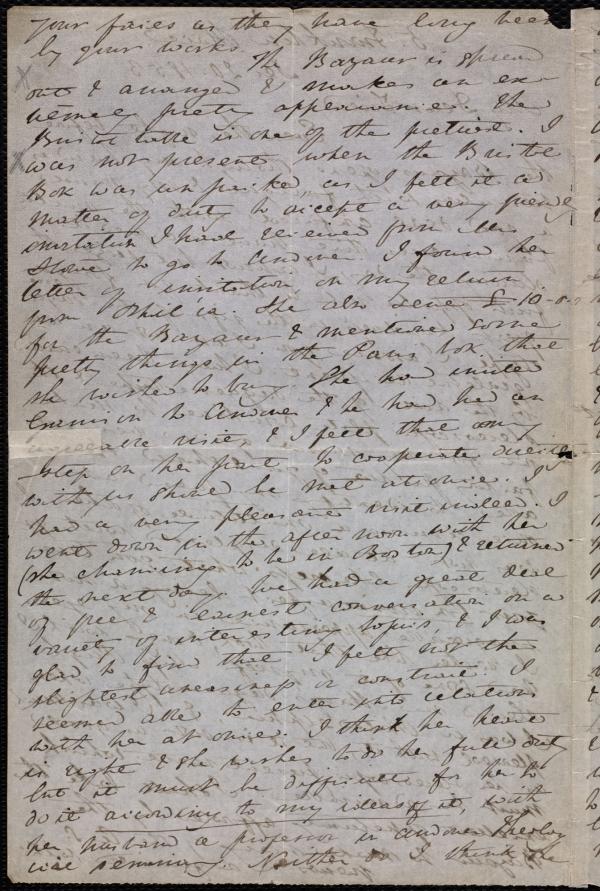 your faces as they have long been
by your works. The Bazaar is spread
out & arranged & makes an ex-
tremely pretty appearance. The
Bristol table is one of the prettiest. I
was not present when the Bristol
Box was unpacked, as I felt it a
matter of duty to accept a very friendly
invitation I had received from Mrs
Stowe to go to Andover. I found her
letter of invitation on my return
from Phil'ia. She also sent £10-0-0
for the Bazaar & mentioned some
pretty things in the Paris box that
she wished to buy. She had invited
Garrison to Andover & he had had an
agreeable visit, & I felt that any
step on her part to cooperate
with us should be met at once. I
had a very pleasant visit indeed. I
went down in the afternoon with her
(she chancing to be in Boston) & returned
the next day. We had a great deal
of free & earnest conversation on a
variety of interesting topics & I was
glad to find that I felt not the
slightest uneasiness or constraint. I
seemed able to enter into relations
with her at once. I think her heart
is right & she wishes to do her full duty
but it must be difficult for her to
do it according to my ideas of it, with
her husband a professor in Andover Theolog
ical seminary. Neither do I think she